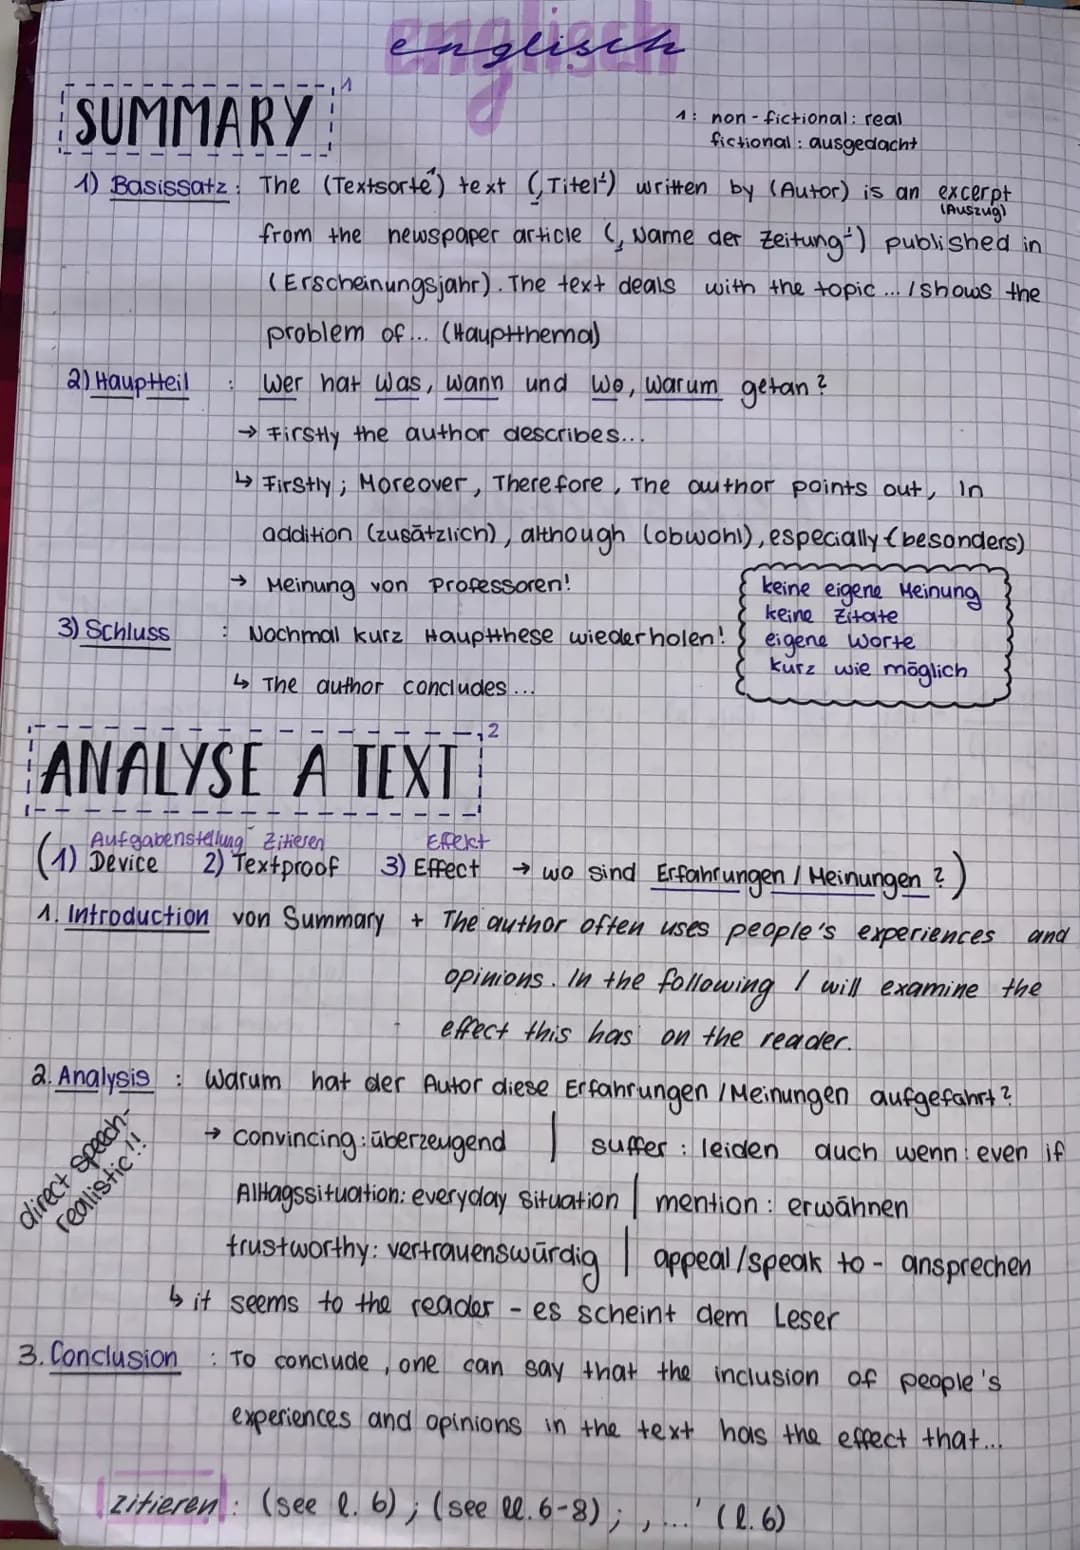 englisch
SUMMARY 1
1: non-fictional: real
fictional: ausgedacht
1) Basissatz: The (Textsorte1) text (‚Titel‘) written by (Autor) is an excerpt
(Auszug)
from the newspaper article (‚Name der Zeitung‘) published in
(Erscheinungsjahr). The text deals with the topic ... / shows the
problem of ... (Hauptthema)
2) Hauptteil : Wer hat Was, Wann und Wo, Warum getan?
→ Firstly the author describes...
↳ Firstly; Moreover, Therefore, The author points out, In
addition (zusätzlich), although (obwohl), especially (besonders)
→ Meinung von Professoren!
keine eigene Meinung
keine Zitate
eigene Worte
kurz wie möglich
3) Schluss : Nochmal kurz Hauptthese wiederholen!
↳ The author concludes ...
ANALYSE A TEXT 2
Aufgabenstellung Zitieren Effekt
(1) Device 2) Textproof 3) Effect → wo sind Erfahrungen / Meinungen?)
1. Introduction von Summary + The author often uses people's experiences and
opinions. In the following I will examine the
effect this has on the reader.
2. Analysis : Warum hat der Autor diese Erfahrungen / Meinungen aufgefahrt?
direct speech-
realistic!!
→ convincing: überzeugend | suffer: leiden auch wenn: even if
Alltagssituation: everyday situation | mention: erwähnen
trustworthy: vertrauenswürdig | appeal/speak to - ansprechen
↳ it seems to the reader - es scheint dem Leser
3. Conclusion : To conclude, one can say that the inclusion of people's
experiences and opinions in the text has the effect that...
zitieren: (see l. 6); (see ll. 6-8); ‚...' (l. 6)